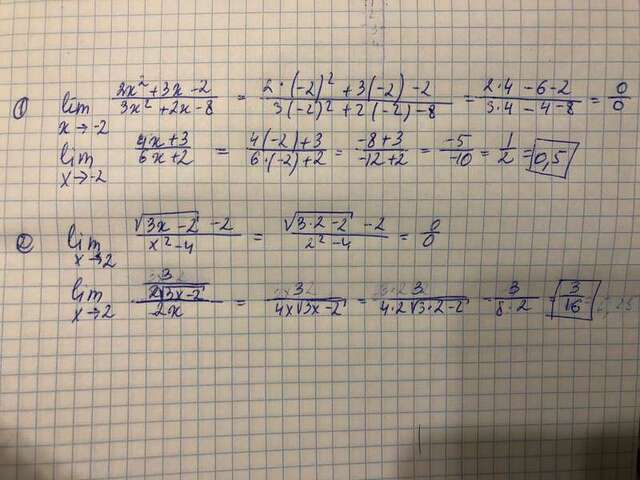 ① lim x→-2 (2x²+3x-2)/(3x²+2x-8) = (2·(-2)²+3(-2)-2)/(3(-2)²+2(-2)-8) = (2·4-6-2)/(3·4-4-8) = 0/0
lim x→-2 (4x+3)/(6x+2) = (4(-2)+3)/(6·(-2)+2) = (-8+3)/(-12+2) = -5/-10 = 1/2 = 0,5
② lim x→2 (√(3x-2) -2)/(x²-4) = (√(3·2-2) -2)/(2²-4) = 0/0
lim x→2 (3/(2√(3x-2)))/(2x) = 3/(4x√(3x-2)) = 3/(4·2√(3·2-2)) = 3/(8·2) = 3/16